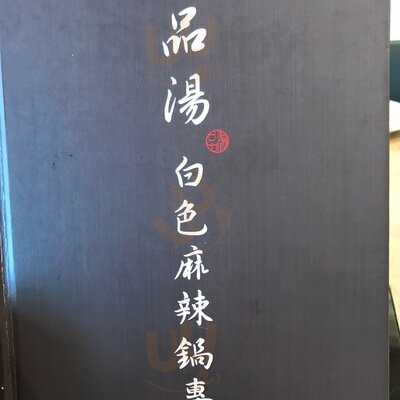 品湯
白色麻辣鍋專